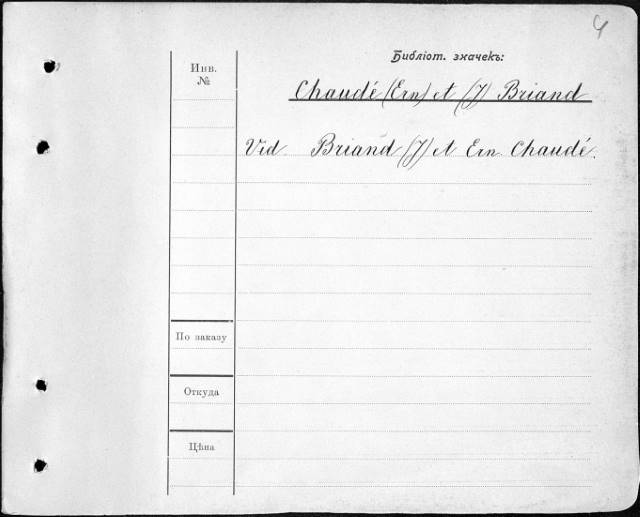 4
Библіот. значекъ:
Инв.
№
Chaudé (Ern) et (J) Briand
Vid. Briand (J) et Ern. Chaudé.
По заказу
Откуда
Цѣна